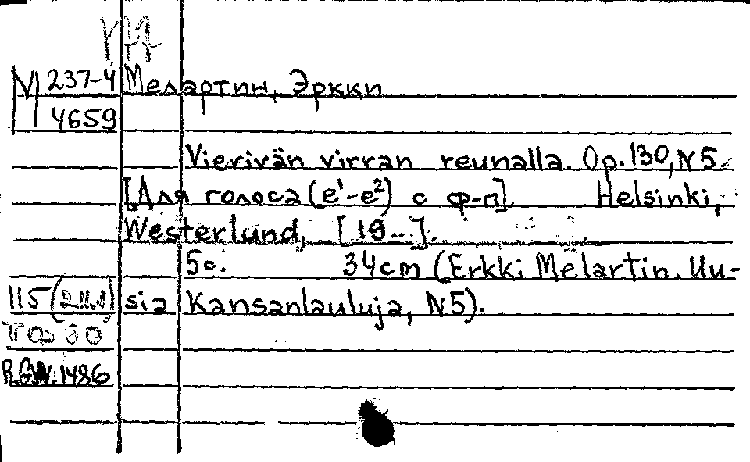 М 237-4 Мелартин, Эркки
4659
Vierivän virran reunalla. Op. 130, N 5.
[Для голоса (e¹-e²) с ф-п] Helsinki,
Westerlund, [19--].
5 с. 34 cm (Erkki Melartin. Uu-
115 sia Kansanlauluja, N5).
R.G.W. 1486